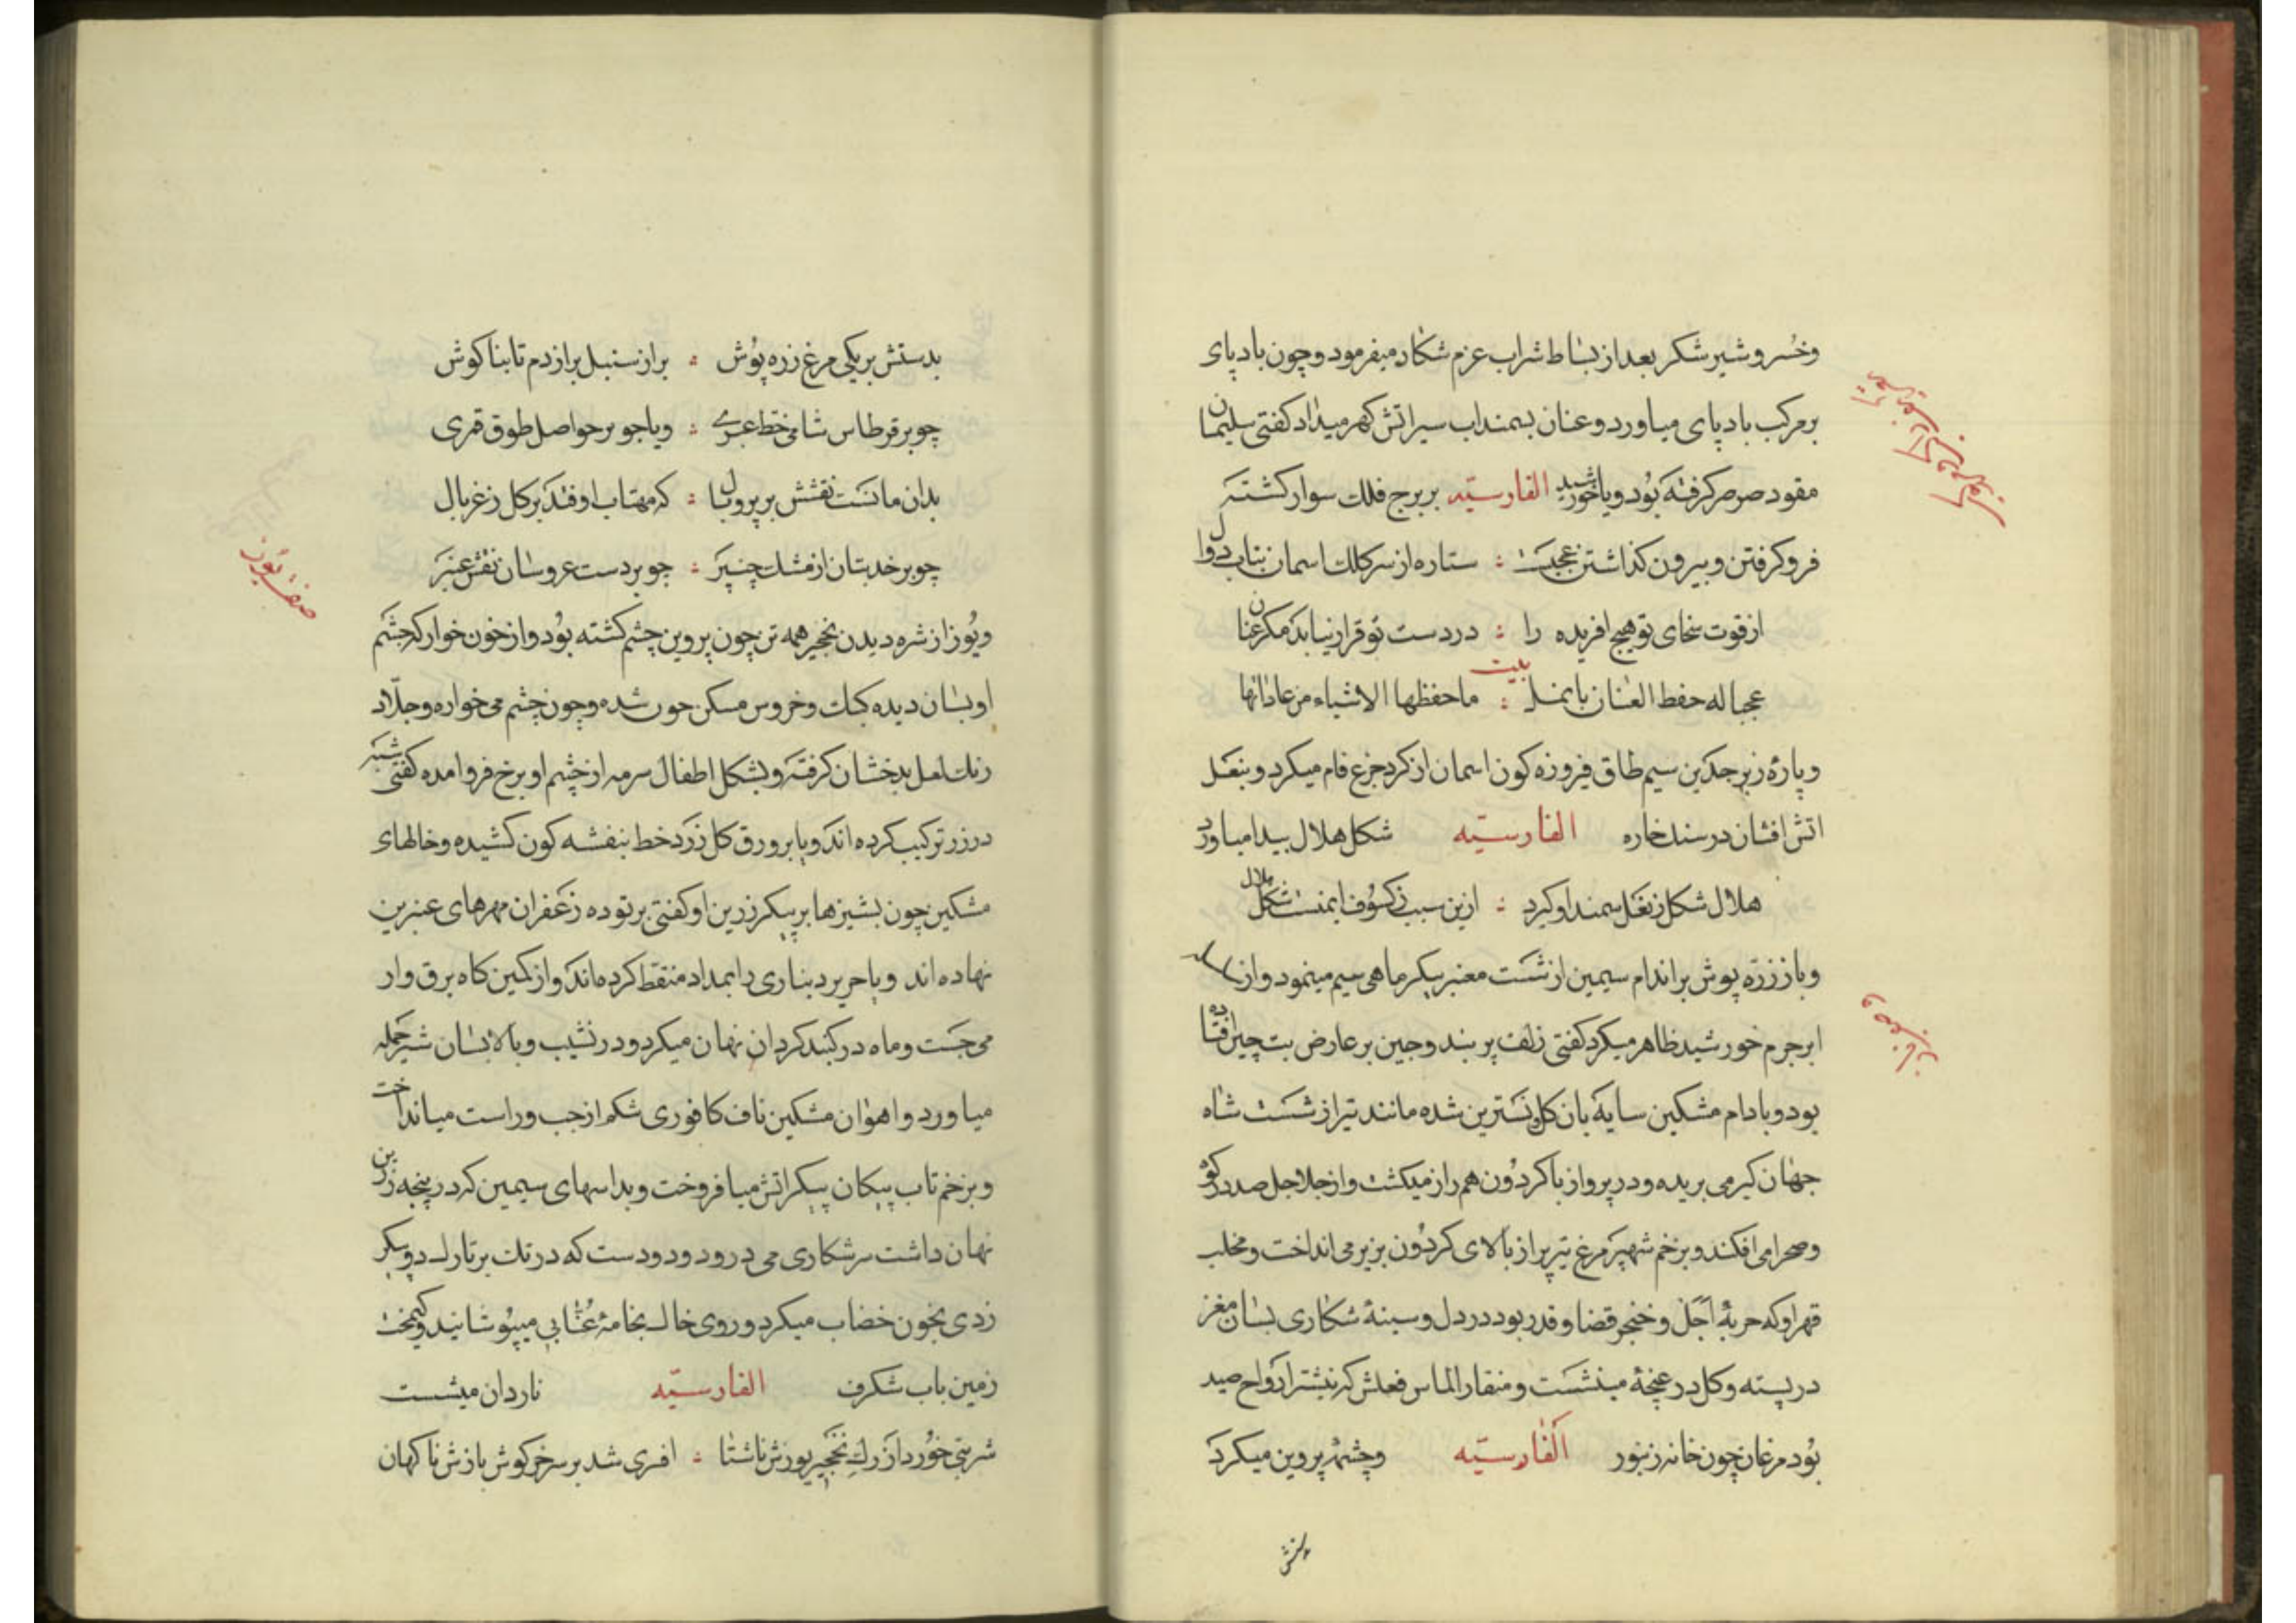 وخسرو شیر شکر بعد از بساط شراب عزم شکار میفرمود و چون باد پای
بر مرکب باد پای میاورد و عنان بسمند اب سیر اتش کهر میداد کفتی سلیمان
مقود صرصر کرفته بود ویا خورشید الفارسیّه بر برج فلك سوار کشته
فرو کرفتن و بیرون کذاشتن عجبست : ستاره از سر کلك اسمان بتاب دوال
از قوت سخای تو هیچ افریده را : در دست تو قرار نیابد مکر عنان
بیت
عجبا له حفظ العنان بانمل : ما حفظها الاشیاء من عاداتها
و پارهٔ زبرجدین سیم طاق فیروزه کون اسمان از کرد جزع فام میکرد و بنعل
اتش افشان در سنك خاره الفارسیّه شکل هلال بیدا میاورد
هلال شکل ز نعل سمند او کیرد : ازین سبب ز کسوف ایمنست شکل هلال
و باز زره پوش بر اندام سیمین از شست معنبر بیکر ماهی سیم مینمود و از
ابر جرم خورشید ظاهر میکرد کفتی زلف پر بند و چین بر عارض بت چین افتاده
بود و بادام مشکین سایه بان کل نسترین شده مانند تیر از شست شاه
جهان کیر می بریده و در پرواز با کردون هم راز میکشت و از جلاجل صدا در کوه
وصحرا می افکند و بزخم شهپر مرغ تیز پر از بالای کردون بزیر می انداخت و مخلب
قهر او که حربهٔ اجل و خنجر قضا و قدر بود در دل و سینهٔ شکاری بسان مغز
در پسته و کل در غنچهٔ مینشست و منقار الماس فعلش که نیشتر ارواح صید
بود مرغان چون خانه زنبور الفارسیّه و چشمهٔ پروین میکرد
بدستش بر یکی مرغ زره پوش : بر از سنبل بر از دم تا بنا کوش
چو بر قرطاس شامی خط عبری : و یا چو بر حواصل طوق قمری
بدان مانست نقشش بر پر و بال : که مهتاب اوفتد بر کل ز غربال
چو بر خد بتان از مشك چنبر : چو بر دست عروسان نقش عنبر
صفت یوز
و یوز از شره دیدن نخجیر همه تن چون پروین چشم کشته بود و از خون خوار که چشم
او بسان دیده کبك و خروس مسکن خون شده و چون چشم می خواره و جلّاد
رنك لعل بدخشان کرفته و بشکل اطفال سرمه از چشم او برخ فرو امده کفتی شبه
در زر ترکیب کرده اند و یا بر ورق کل زرد خط بنفشه کون کشیده و خالهای
مشکین چون بشیزها بر پیکر زرین او کفتی بر توده زعفران مهرهای عنبرین
نهاده اند و یا حریر دیناری را بمداد منقط کرده اند و از کمین کاه برق وار
می جست و ماه در کنبد کردان نهان میکرد و در نشیب و بالا بسان شیر حمله
میاورد و اهوان مشکین ناف کافوری شکم از جب و راست میانداخت
و بزخم تاب پیکان پیکر اتش میافروخت و بداسهای سیمین که در پنجه زرین
نهان داشت سر شکاری می درود و دو دست که در تك بر تارك دو پیکر
زدی بخون خضاب میکرد و روی خاك بخامهٔ عنّابی میپوشانید و کیمخت
زمین باب شکرف الفارسیّه ناردان میشست
شربتی خورد از رك نخجیر یوزش ناشتا : افری شد بر سر خرکوش بازش ناکهان